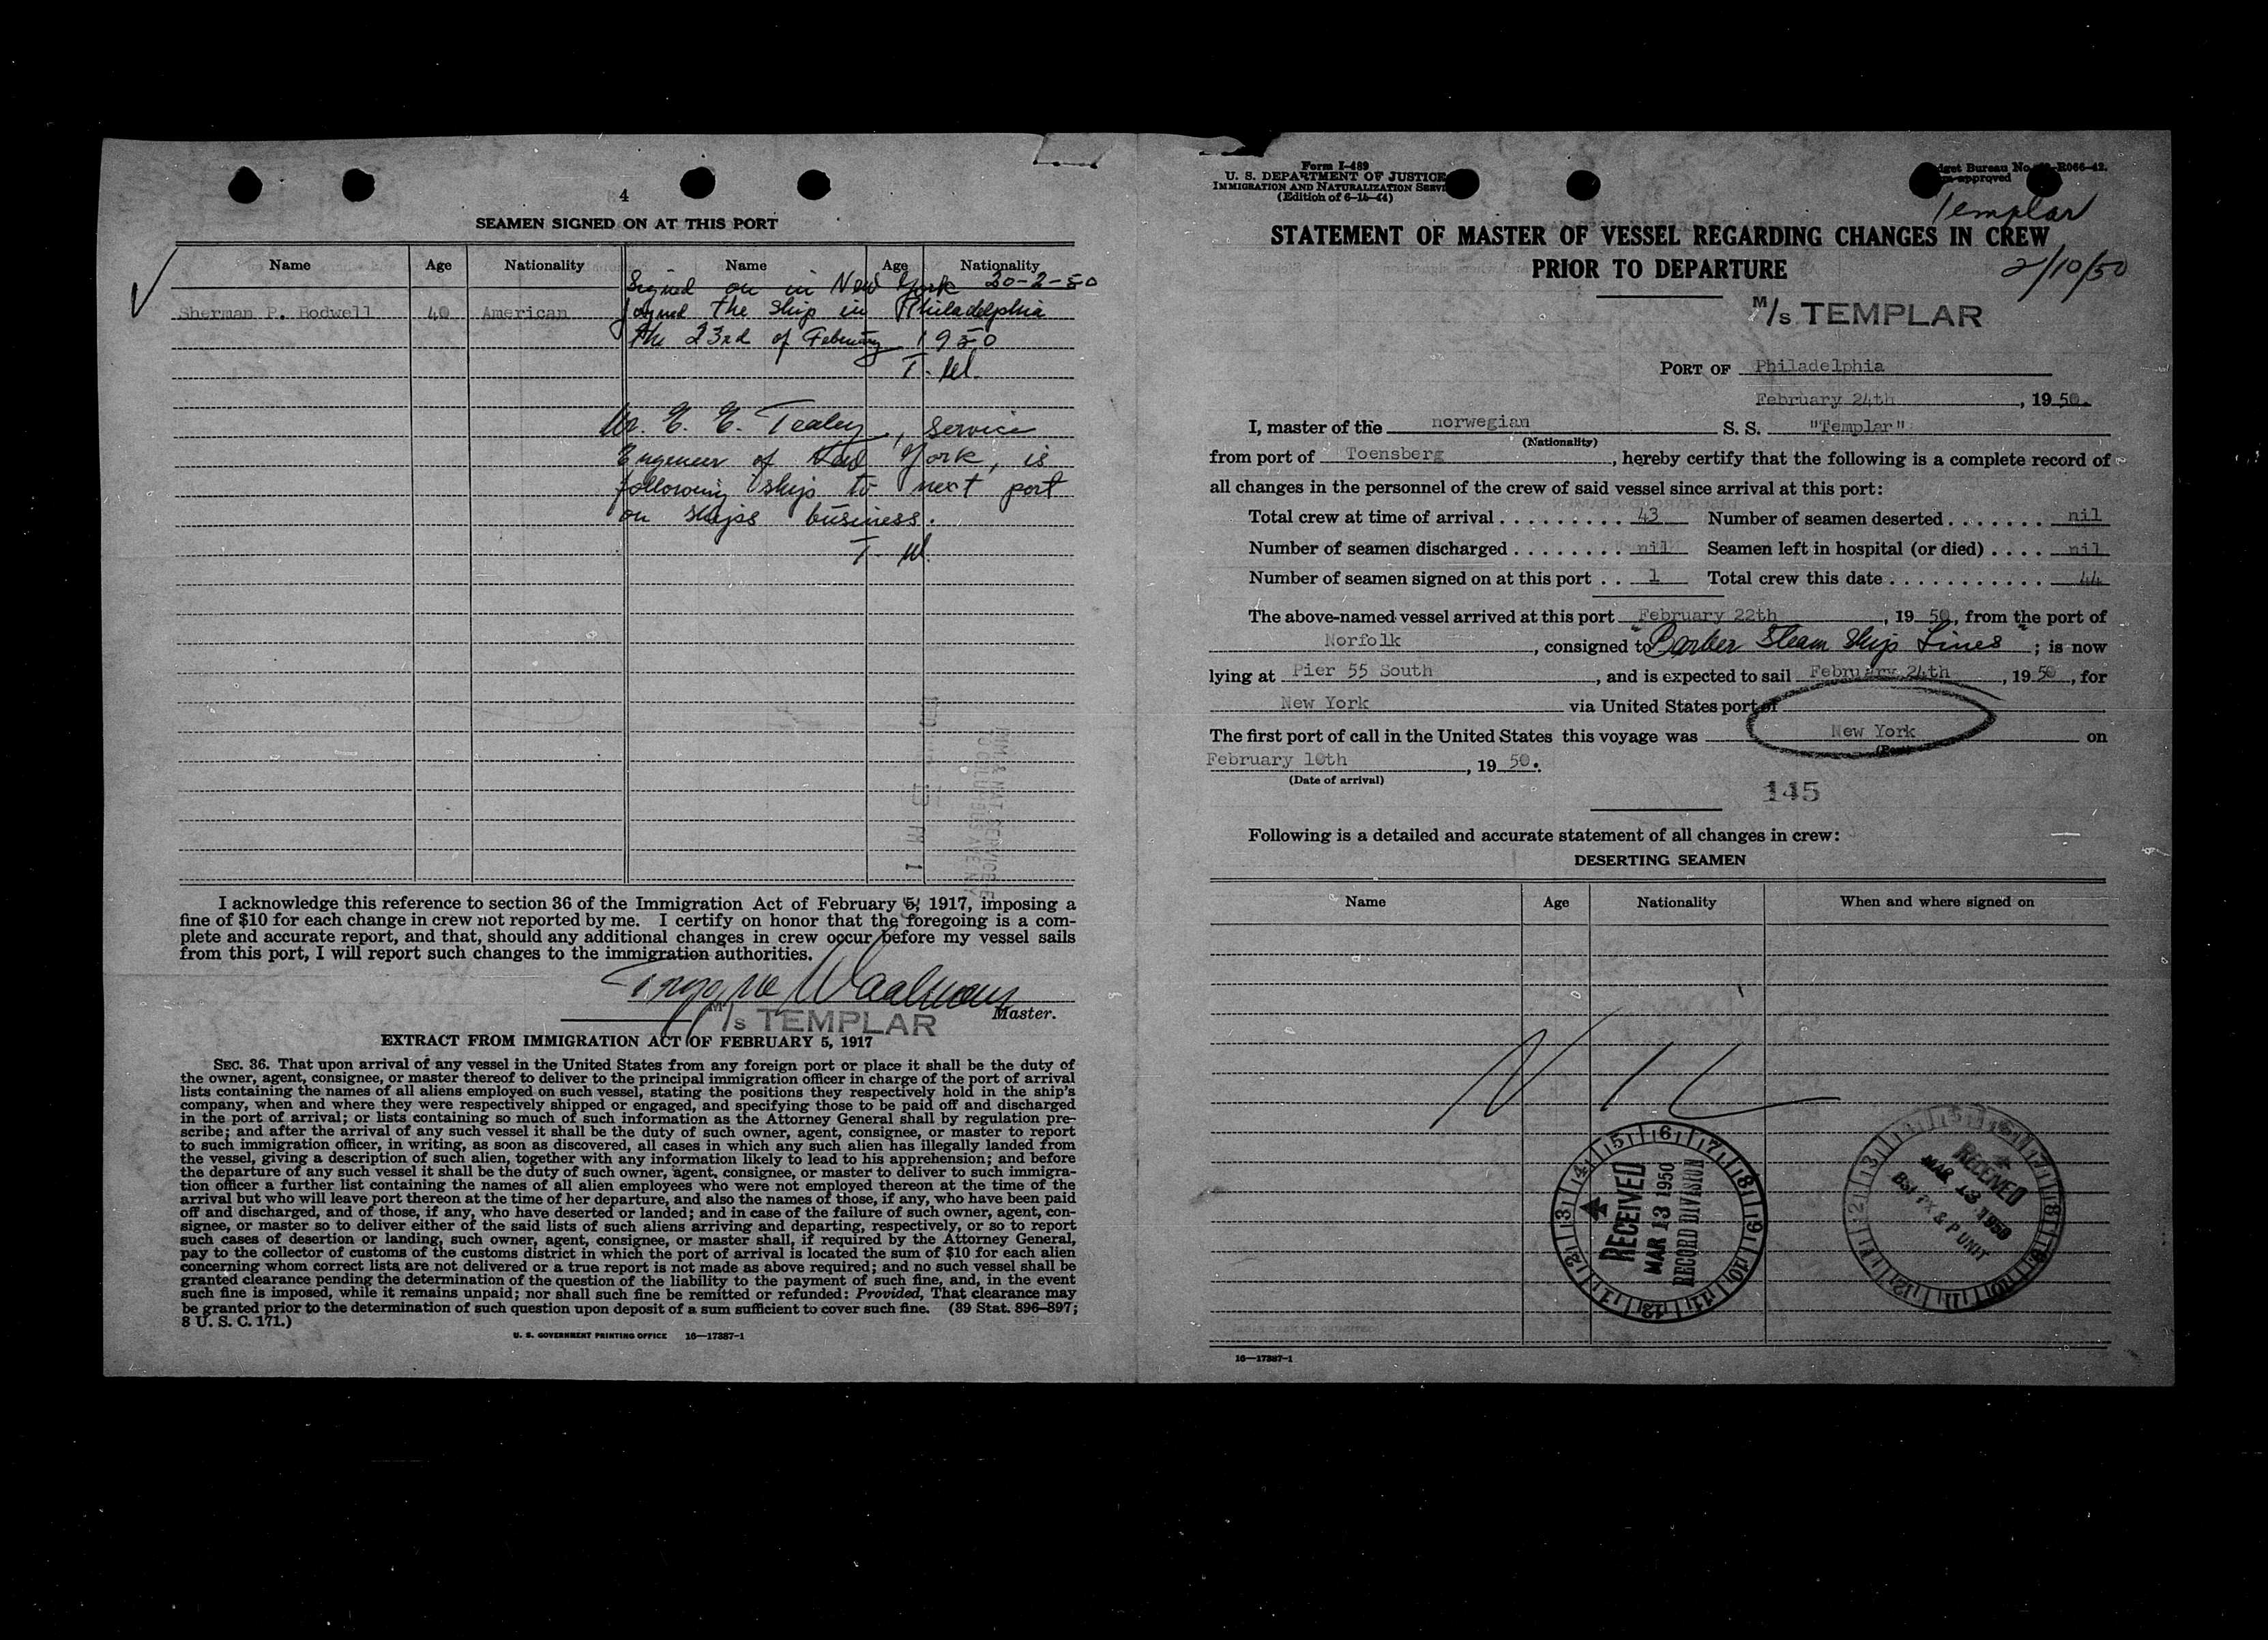 4
SEAMEN SIGNED ON AT THIS PORT
Name Age Nationality Name Age Nationality
Signed on in New York 20-2-50
Sherman P. Bodwell 40 American joined the ship in Philadelphia
the 23rd of February 1950
T. W.
Mr. E. E. Tealey, service
Engeneer of New York, is
following ship to next port
on ships business.
T. W.
I acknowledge this reference to section 36 of the Immigration Act of February 5, 1917, imposing a
fine of $10 for each change in crew not reported by me. I certify on honor that the foregoing is a com-
plete and accurate report, and that, should any additional changes in crew occur before my vessel sails
from this port, I will report such changes to the immigration authorities.
Master.
M/s TEMPLAR
EXTRACT FROM IMMIGRATION ACT OF FEBRUARY 5, 1917
SEC. 36. That upon arrival of any vessel in the United States from any foreign port or place it shall be the duty of
the owner, agent, consignee, or master thereof to deliver to the principal immigration officer in charge of the port of arrival
lists containing the names of all aliens employed on such vessel, stating the positions they respectively hold in the ship's
company, when and where they were respectively shipped or engaged, and specifying those to be paid off and discharged
in the port of arrival; or lists containing so much of such information as the Attorney General shall by regulation pre-
scribe; and after the arrival of any such vessel it shall be the duty of such owner, agent, consignee, or master to report
to such immigration officer, in writing, as soon as discovered, all cases in which any such alien has illegally landed from
the vessel, giving a description of such alien, together with any information likely to lead to his apprehension; and before
the departure of any such vessel it shall be the duty of such owner, agent, consignee, or master to deliver to such immigra-
tion officer a further list containing the names of all alien employees who were not employed thereon at the time of the
arrival but who will leave port thereon at the time of her departure, and also the names of those, if any, who have been paid
off and discharged, and of those, if any, who have deserted or landed; and in case of the failure of such owner, agent, con-
signee, or master so to deliver either of the said lists of such aliens arriving and departing, respectively, or so to report
such cases of desertion or landing, such owner, agent, consignee, or master shall, if required by the Attorney General,
pay to the collector of customs of the customs district in which the port of arrival is located the sum of $10 for each alien
concerning whom correct lists are not delivered or a true report is not made as above required; and no such vessel shall be
granted clearance pending the determination of the question of the liability to the payment of such fine, and, in the event
such fine is imposed, while it remains unpaid; nor shall such fine be remitted or refunded: Provided, That clearance may
be granted prior to the determination of such question upon deposit of a sum sufficient to cover such fine. (39 Stat. 896–897;
8 U. S. C. 171.)
U. S. GOVERNMENT PRINTING OFFICE 16—17387-1
Form I-489
U. S. DEPARTMENT OF JUSTICE
IMMIGRATION AND NATURALIZATION
(Edition of 6-15-44)
Bureau No. R066-42.
approved
Templar
STATEMENT OF MASTER OF VESSEL REGARDING CHANGES IN CREW
PRIOR TO DEPARTURE
2/10/50
M/s TEMPLAR
PORT OF Philadelphia
February 24th, 1950.
I, master of the norwegian S. S. "Templar"
(Nationality)
from port of Toensberg, hereby certify that the following is a complete record of
all changes in the personnel of the crew of said vessel since arrival at this port:
Total crew at time of arrival . . . . . . . . . 43 Number of seamen deserted . . . . . . . nil
Number of seamen discharged . . . . . . . . nil Seamen left in hospital (or died) . . . . nil
Number of seamen signed on at this port . . 1 Total crew this date . . . . . . . . . . . . 44
The above-named vessel arrived at this port February 22th, 1950, from the port of
Norfolk, consigned to "Barber Steam Ship Lines"; is now
lying at Pier 55 South, and is expected to sail February 24th, 1950, for
New York via United States port of
The first port of call in the United States this voyage was New York on
(Port)
February 10th, 1950.
(Date of arrival)
145
Following is a detailed and accurate statement of all changes in crew:
DESERTING SEAMEN
Name Age Nationality When and where signed on
RECEIVED
MAR 13 1950
RECORD DIVISION
RECEIVED
MAR 13 1950
& P UNIT
16—17387-1